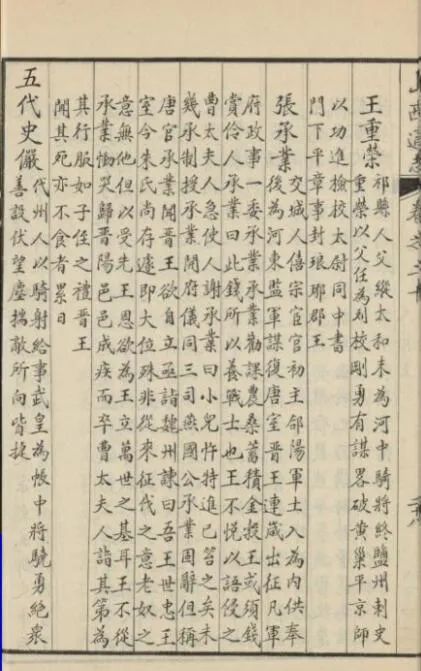 王重榮
祁縣人父縱太和末為河中騎將終鹽州刺史
重榮以父任為列校剛勇有謀畧破黃巢平京師
以功進檢校太尉同中書
門下平章事封琅琊郡王
張承業
交城人僖宗宦官初主郃陽軍士入為內供奉
後為河東監軍謀復唐室晉王連歲出征凡軍
府政事一委承業承業勸課農桑蓄積金投王或須錢
賞伶人承業曰此錢所以養戰士也王不悅以語侵之
曹太夫人急使人謝承業曰小兒忤特進已笞之矣未
幾承制授承業開府儀同三司燕國公承業固辭但稱
唐官承業聞晉王欲自立亟詣魏州諫曰吾王世忠王
室今朱氏尚存遽即大位殊非從來征伐之意老奴之
意無他但以受先王恩欲為王立萬世之基耳王不從
承業慟哭歸晉陽邑邑成疾而卒曹太夫人詣其第為
其行服如子侄之禮晉王
聞其死亦不食者累日
五代史儼
代州人以騎射給事武皇為帳中將驍勇絕衆
善設伏望塵揣敵所向皆捷